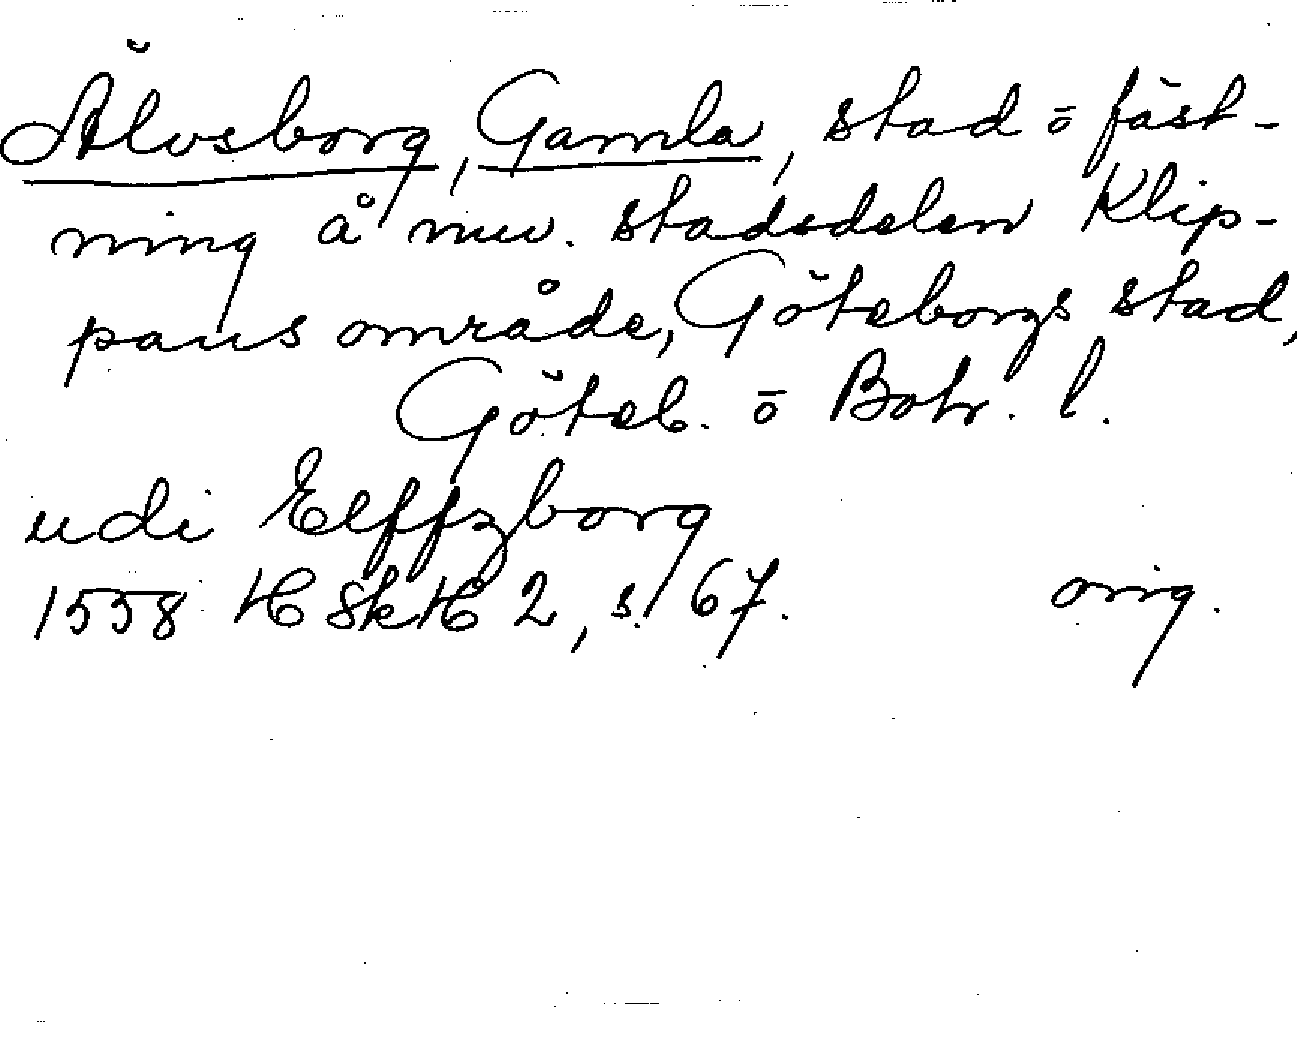 Älvsborg, Gamla, stad ō fäst-
ning å nuv. stadsdelen Klip-
pans område, Göteborgs stad,
Göteb. ō Boh. l.
udi Elffzborg
1558 HSkH 2, s. 67. orig.